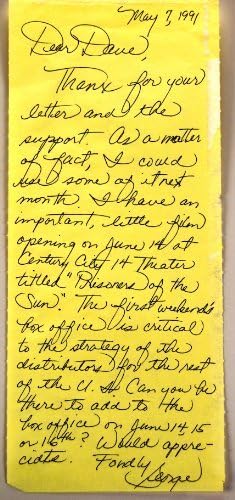 May 7, 1991
Dear Dave,
Thanx for your
letter and the
support. As a matter
of fact, I could
use some of it next
month. I have an
important, little film
opening on June 14 at
Century City 14 Theater
titled "Prisoners of the
Sun". The first weekend's
box office is critical
to the strategy of the
distributors for the rest
of the U.S. Can you be
there to add to the
box office on June 14, 15
or 16th? Would appre-
ciate. Fondly
George